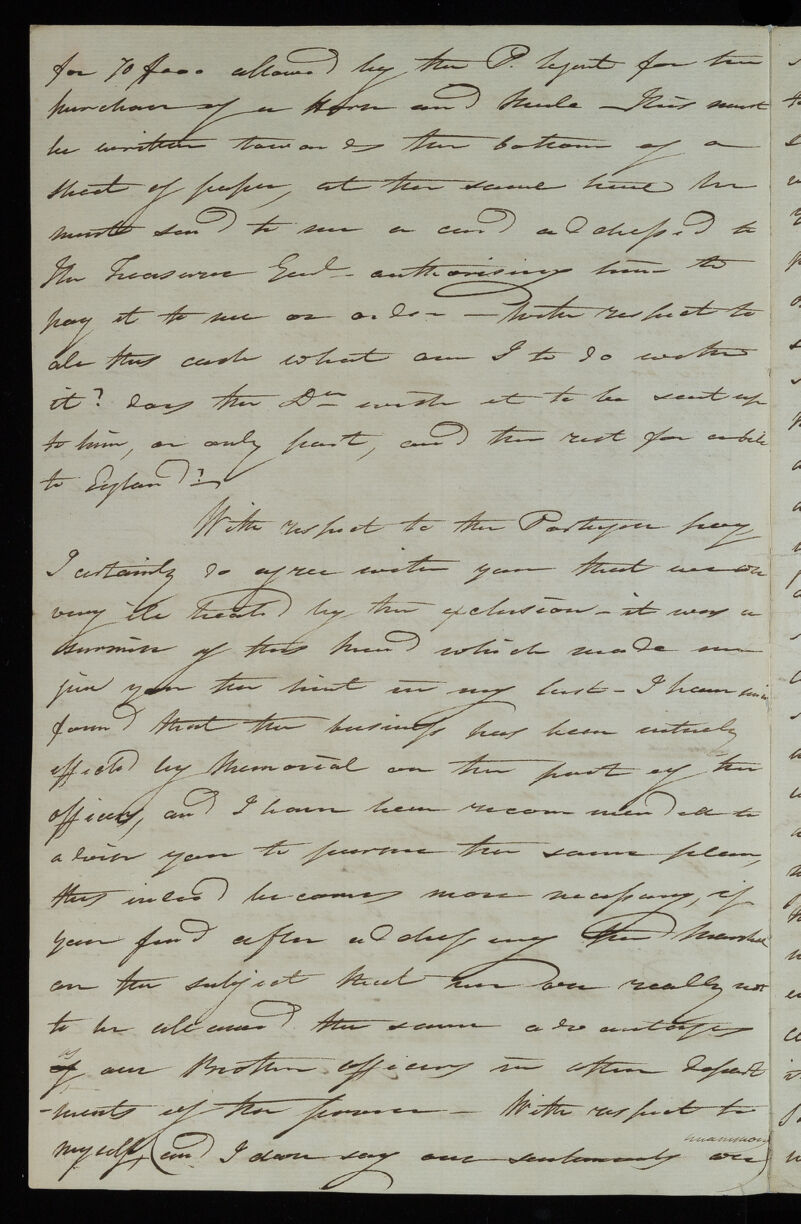 for 70 $000 allowed by the P. Regent for the
purchase of a Horse and Mule – This must
be written towards the bottom of a
sheet of paper, at the same time he
must send to me a card addressed to
the Treasurer Genl – authorising him to
pay it to me or order – With respect to
all this cash what am I to do with
it? does the Drn wish it to be sent up
to him, or only part, and the rest for a bill
to England?
With respect to the Portuguese pay
I certainly do agree with you that we are
very ill treated by the exclusion – it was a
surmise of this kind which made me
give you the hint in my last – I have since
found that the business has been entirely
effected by Memorial on the part of the
officers, and I have been recommended to
advise you to pursue the same plan,
this indeed becomes more necessary, if
you find after addressing the Marshal
on the subject that we are really not
to be allowed the same advantages
as our Brother officers in other depart
-ments of the service – With respect to
myself, (and I dare say our sentiments are
unanimous)